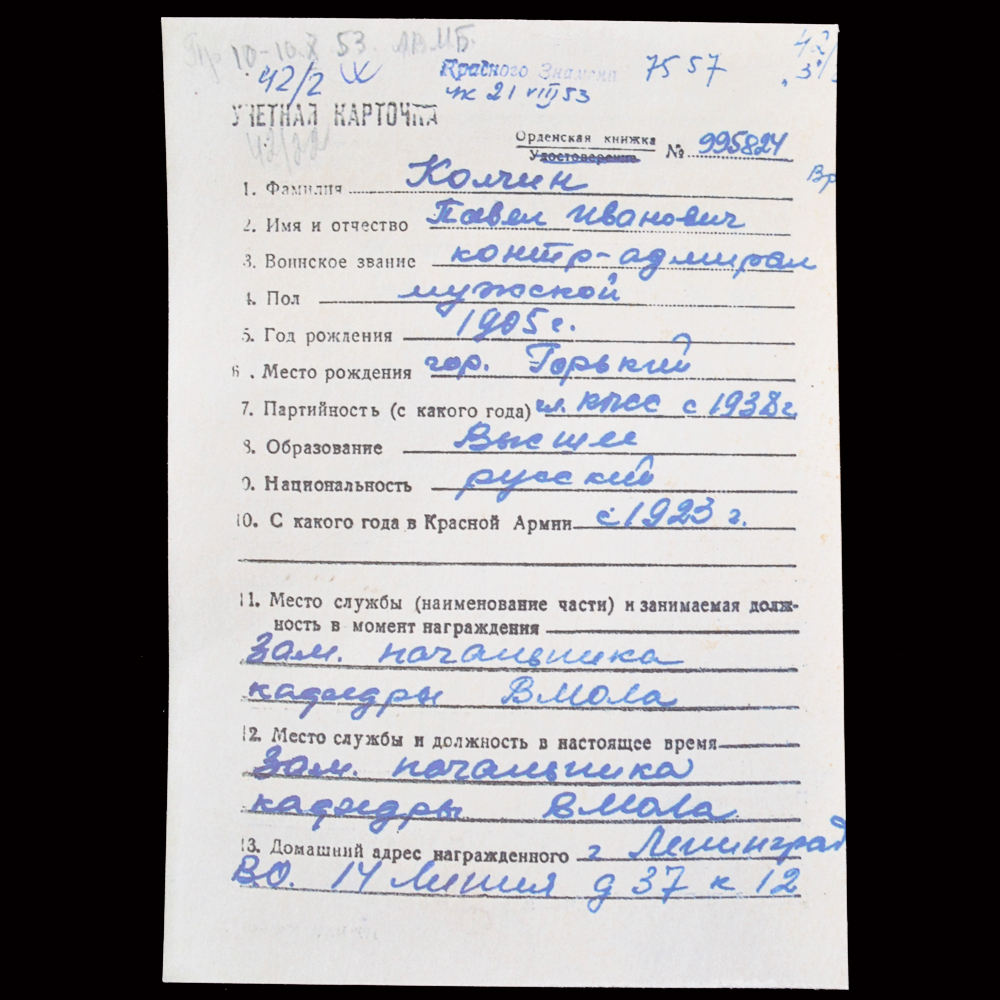 Пр 10-10.X 53. ЛВМБ. 42/
42/2 Красного Знамени 7557
ук 21 VIII 53
УЧЕТНАЯ КАРТОЧКА
42/22
Орденская книжка
Удостоверение № 995824
Вр
1. Фамилия Колчин
2. Имя и отчество Павел Иванович
3. Воинское звание контр-адмирал
4. Пол мужской
5. Год рождения 1905 г.
6. Место рождения гор. Горький
7. Партийность (с какого года) чл. КПСС с 1938 г.
8. Образование Высшее
9. Национальность русский
10. С какого года в Красной Армии с 1923 г.
11. Место службы (наименование части) и занимаемая долж-
ность в момент награждения
Зам. начальника
кафедры ВМОЛА
12. Место службы и должность в настоящее время
Зам. начальника
кафедры ВМОЛА
13. Домашний адрес награжденного г Ленинград
В.О. 14 Линия д 37 к 12